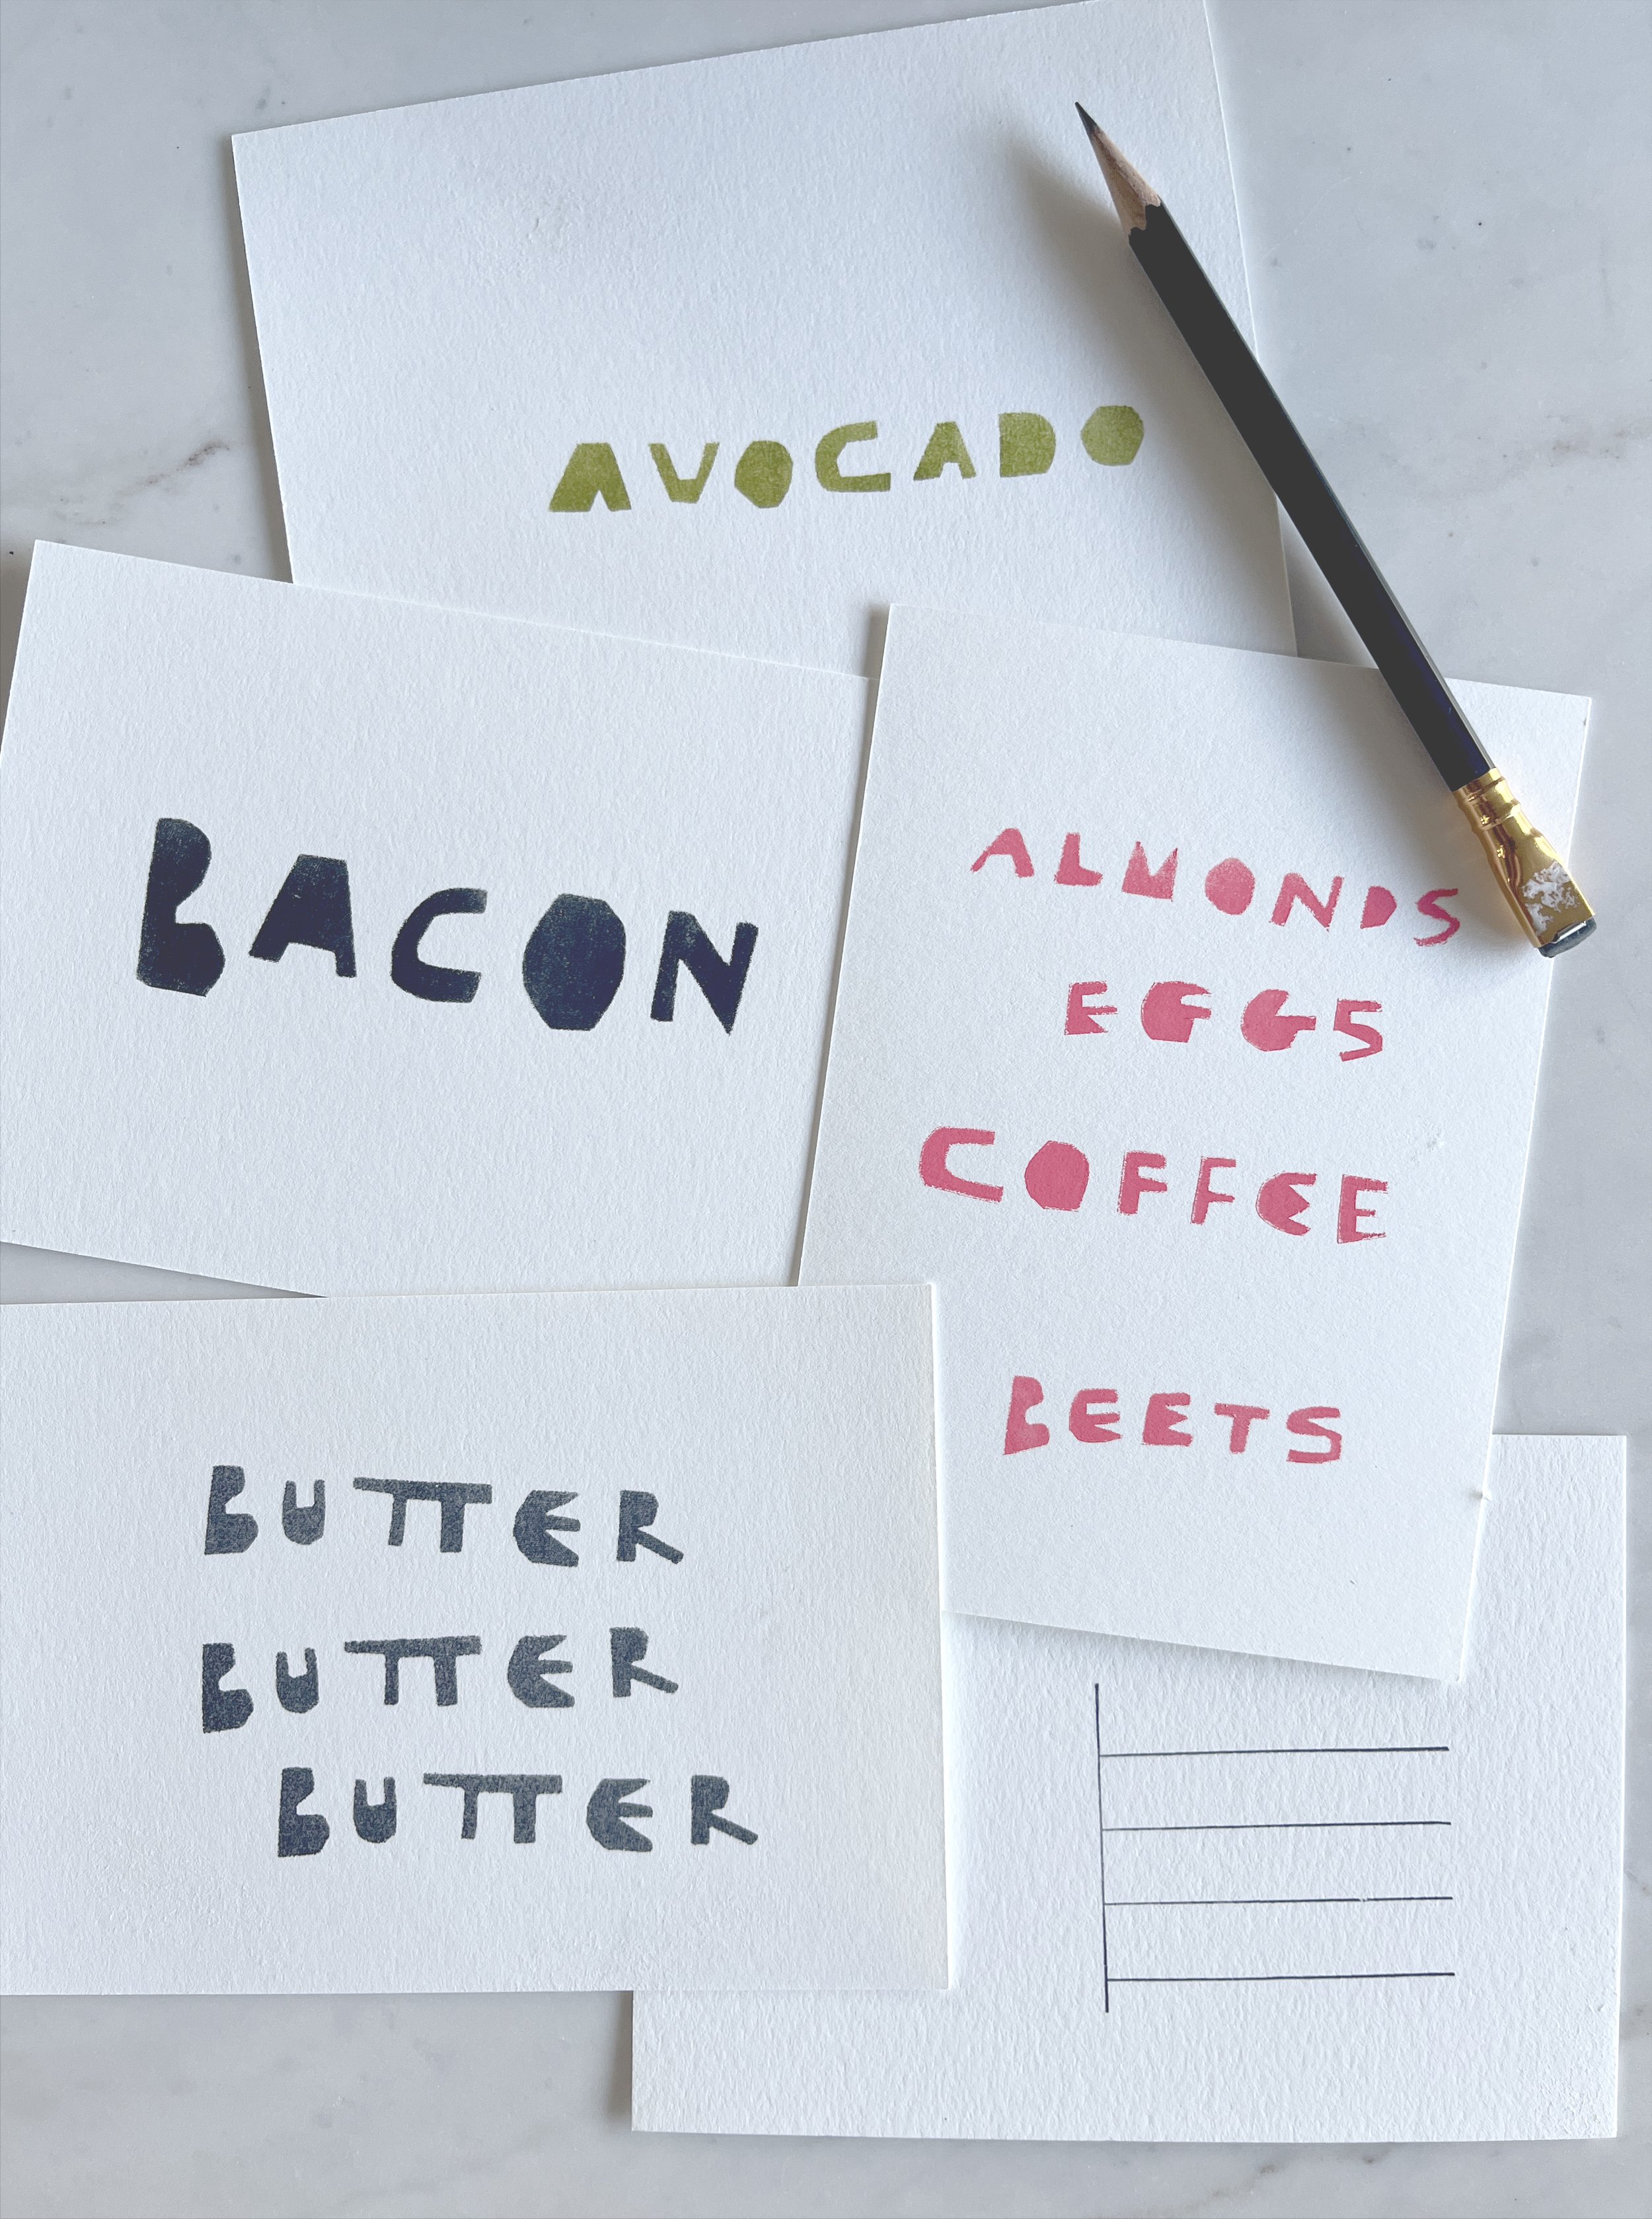 AVOCADO
BACON
ALMONDS
EGGS
COFFEE
BEETS
BUTTER
BUTTER
BUTTER